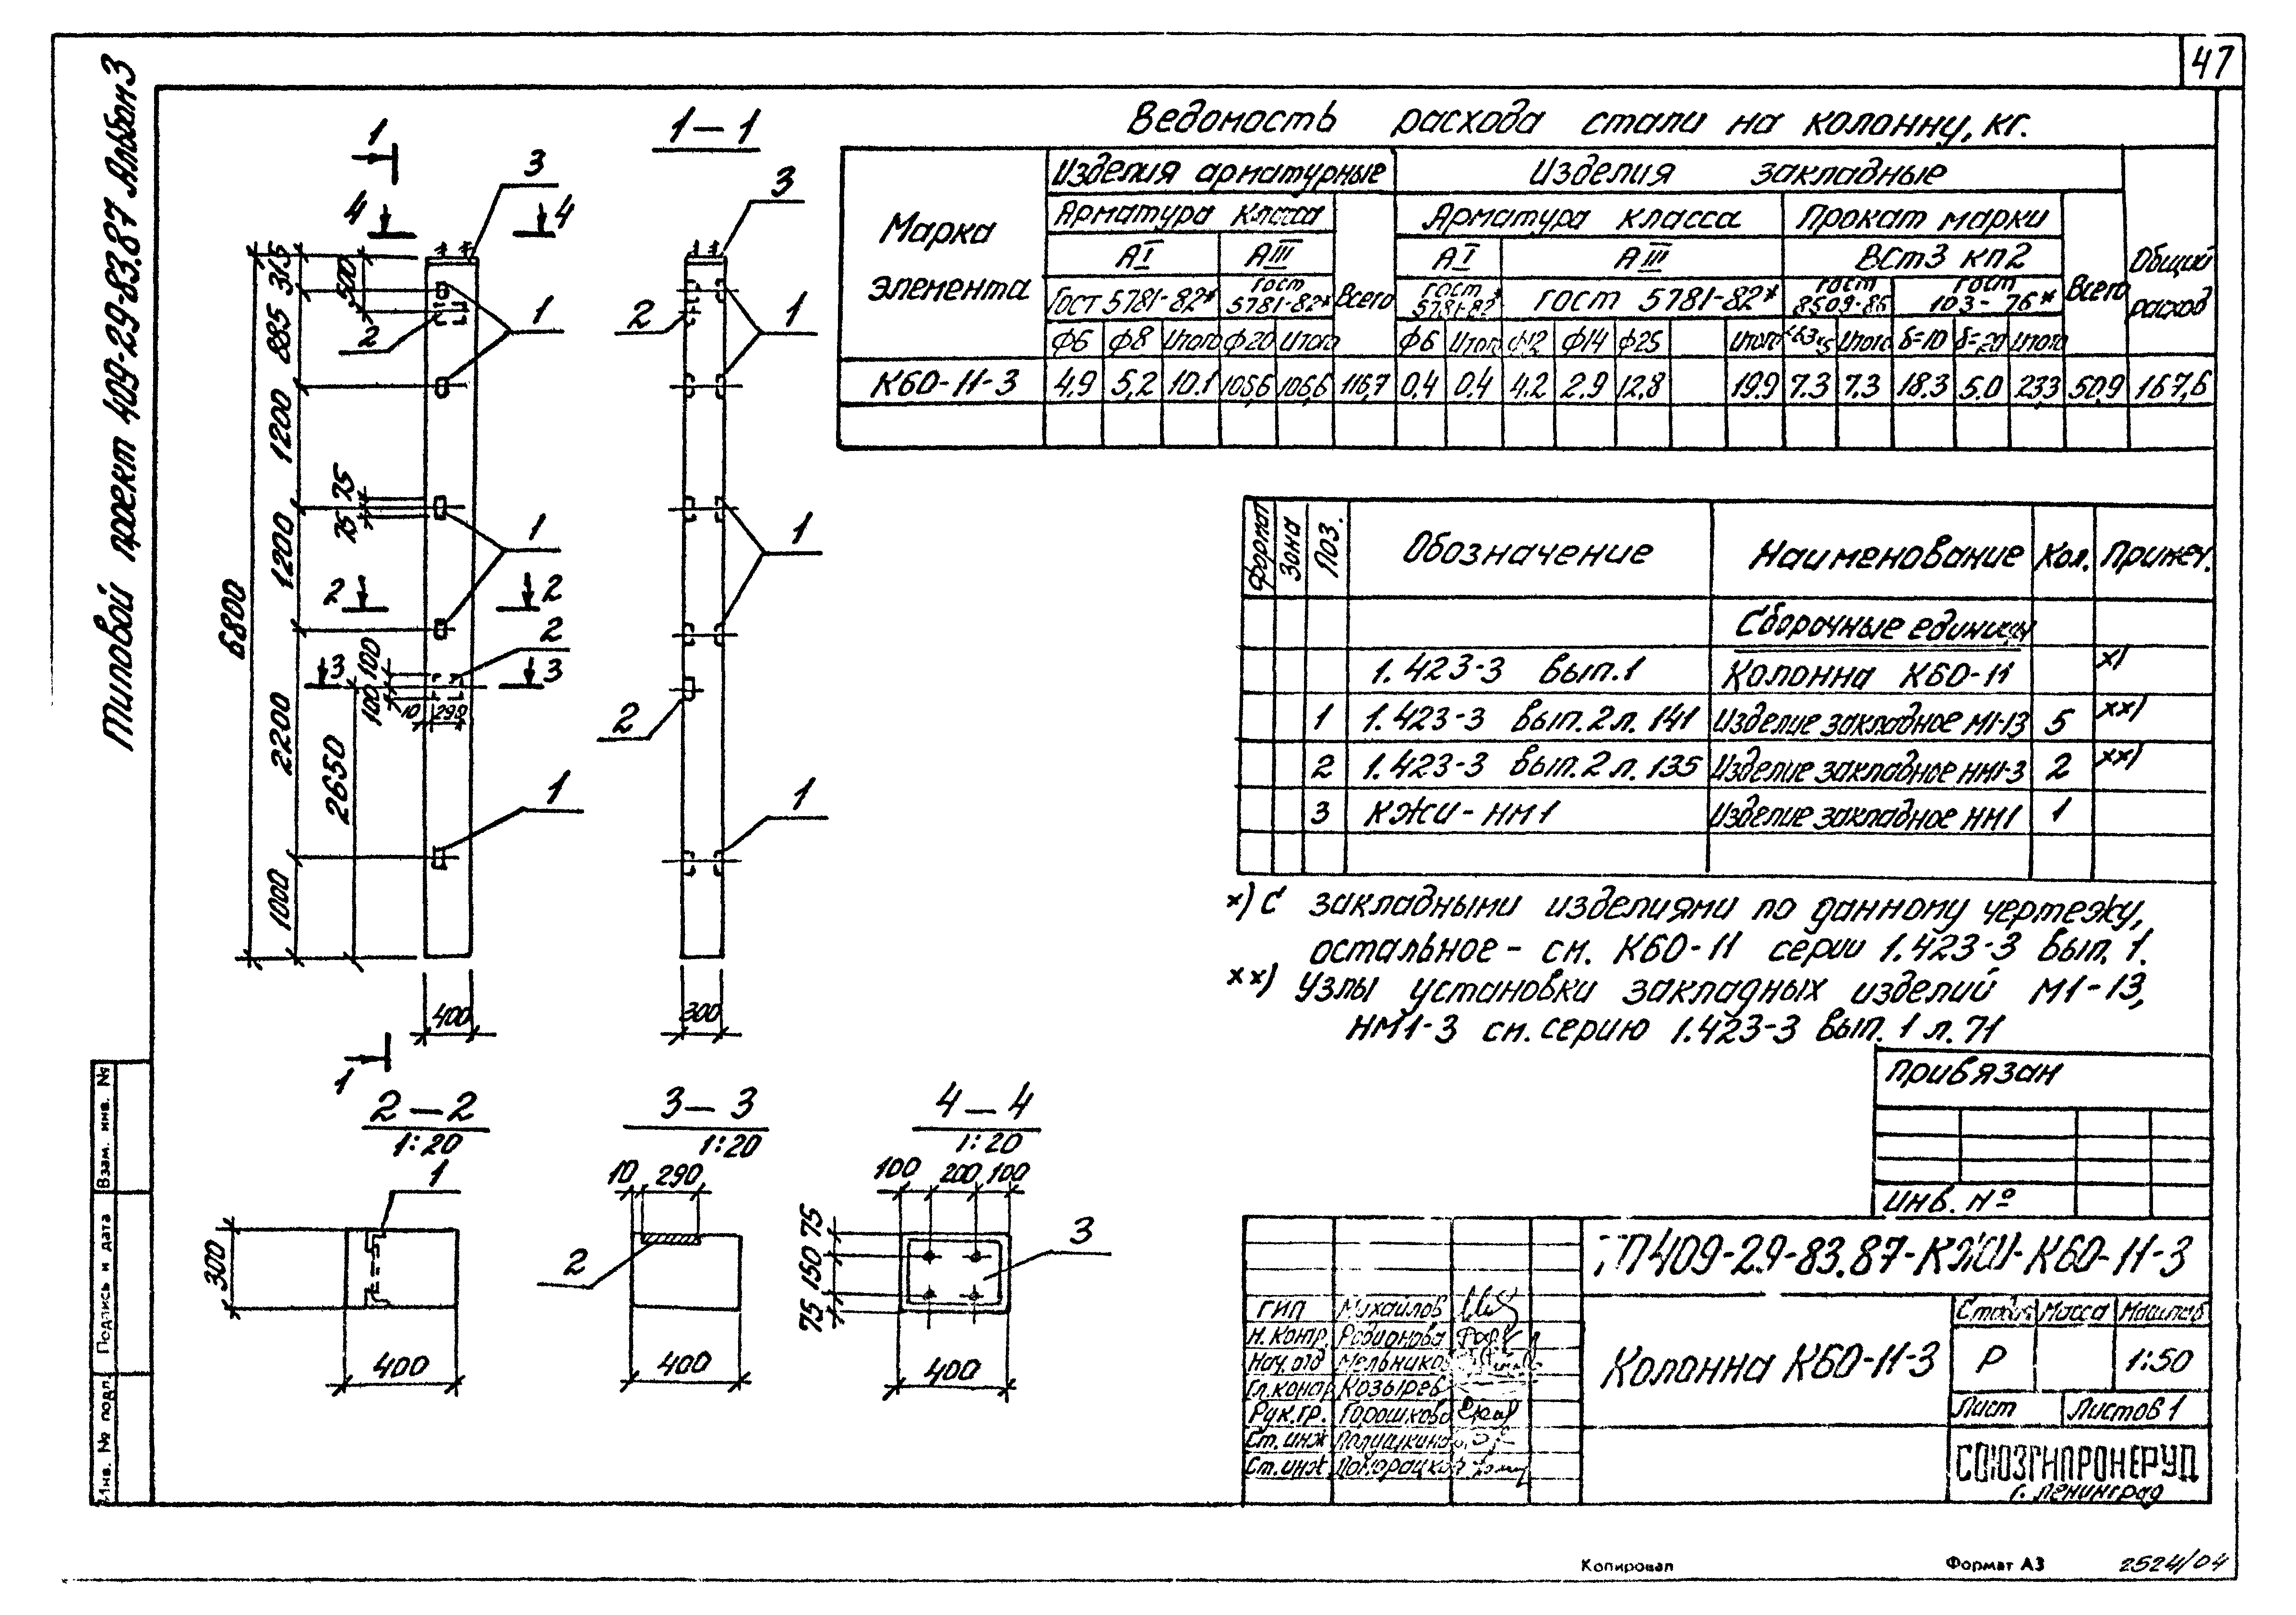 47
Типовой проект 409-29-83.87 Альбом 3
1
4
3
4
315
500
885
1
2
1200
75
75
1200
1
2
2
2
6800
3
100
100
3
10
290
2200
2650
1
1000
400
1
1-1
3
2
1
1
2
1
300
Ведомость расхода стали на колонну, кг.
Марка элемента
Изделия арматурные
Изделия закладные
Общий расход
Арматура класса
Всего
Арматура класса
Прокат марки
Всего
АI
АIII
АI
АIII
ВСт3 кп2
Гост 5781-82*
Гост 5781-82*
Гост 5781-82*
Гост 5781-82*
Гост 8509-86
Гост 103-76*
ф6 ф8 Итого ф20 Итого ф6 Итого ф12 ф14 ф25 Итого Итого δ=10 δ=20 Итого
К60-11-3 4.9 5,2 10.1 106,6 106,6 116,7 0,4 0.4 4.2 2.9 12,8 19.9 7.3 7.3 18.3 5.0 23.3 50,9 167,6
Формат Зона Поз. Обозначение Наименование Кол. Примеч.
Сборочные единицы
1.423-3 вып.1 Колонна К60-11 х)
1 1.423-3 вып.2 л. 141 Изделие закладное М1-13 5 хх)
2 1.423-3 вып.2 л. 135 Изделие закладное НМ1-3 2 хх)
3 КЖИ-НМ1 Изделие закладное НМ1 1
х) С закладными изделиями по данному чертежу,
остальное - см. К60-11 серии 1.423-3 вып. 1.
хх) Узлы установки закладных изделий М1-13,
НМ1-3 см. серию 1.423-3 вып. 1 л. 71
Привязан
Инв. №
2-2
1:20
1
300
400
3-3
1:20
10 290
2
400
4-4
1:20
100 200 100
75
150
75
3
400
ТП409-29-83.87-КЖИ-К60-11-3
ГИП Михайлов
Н. контр. Родионова
Нач. отд Мельников
Гл. констр Козырев
Рук. гр. Горошкова
Ст. инж
Ст. инж
Колонна К60-11-3
Стадия Масса Масштаб
Р 1:50
Лист Листов 1
СОЮЗГИПРОНЕРУД
г. Ленинград
Взам. инв. №
Подпись и дата
Инв. № подл.
Копировал Формат А3 2524/04